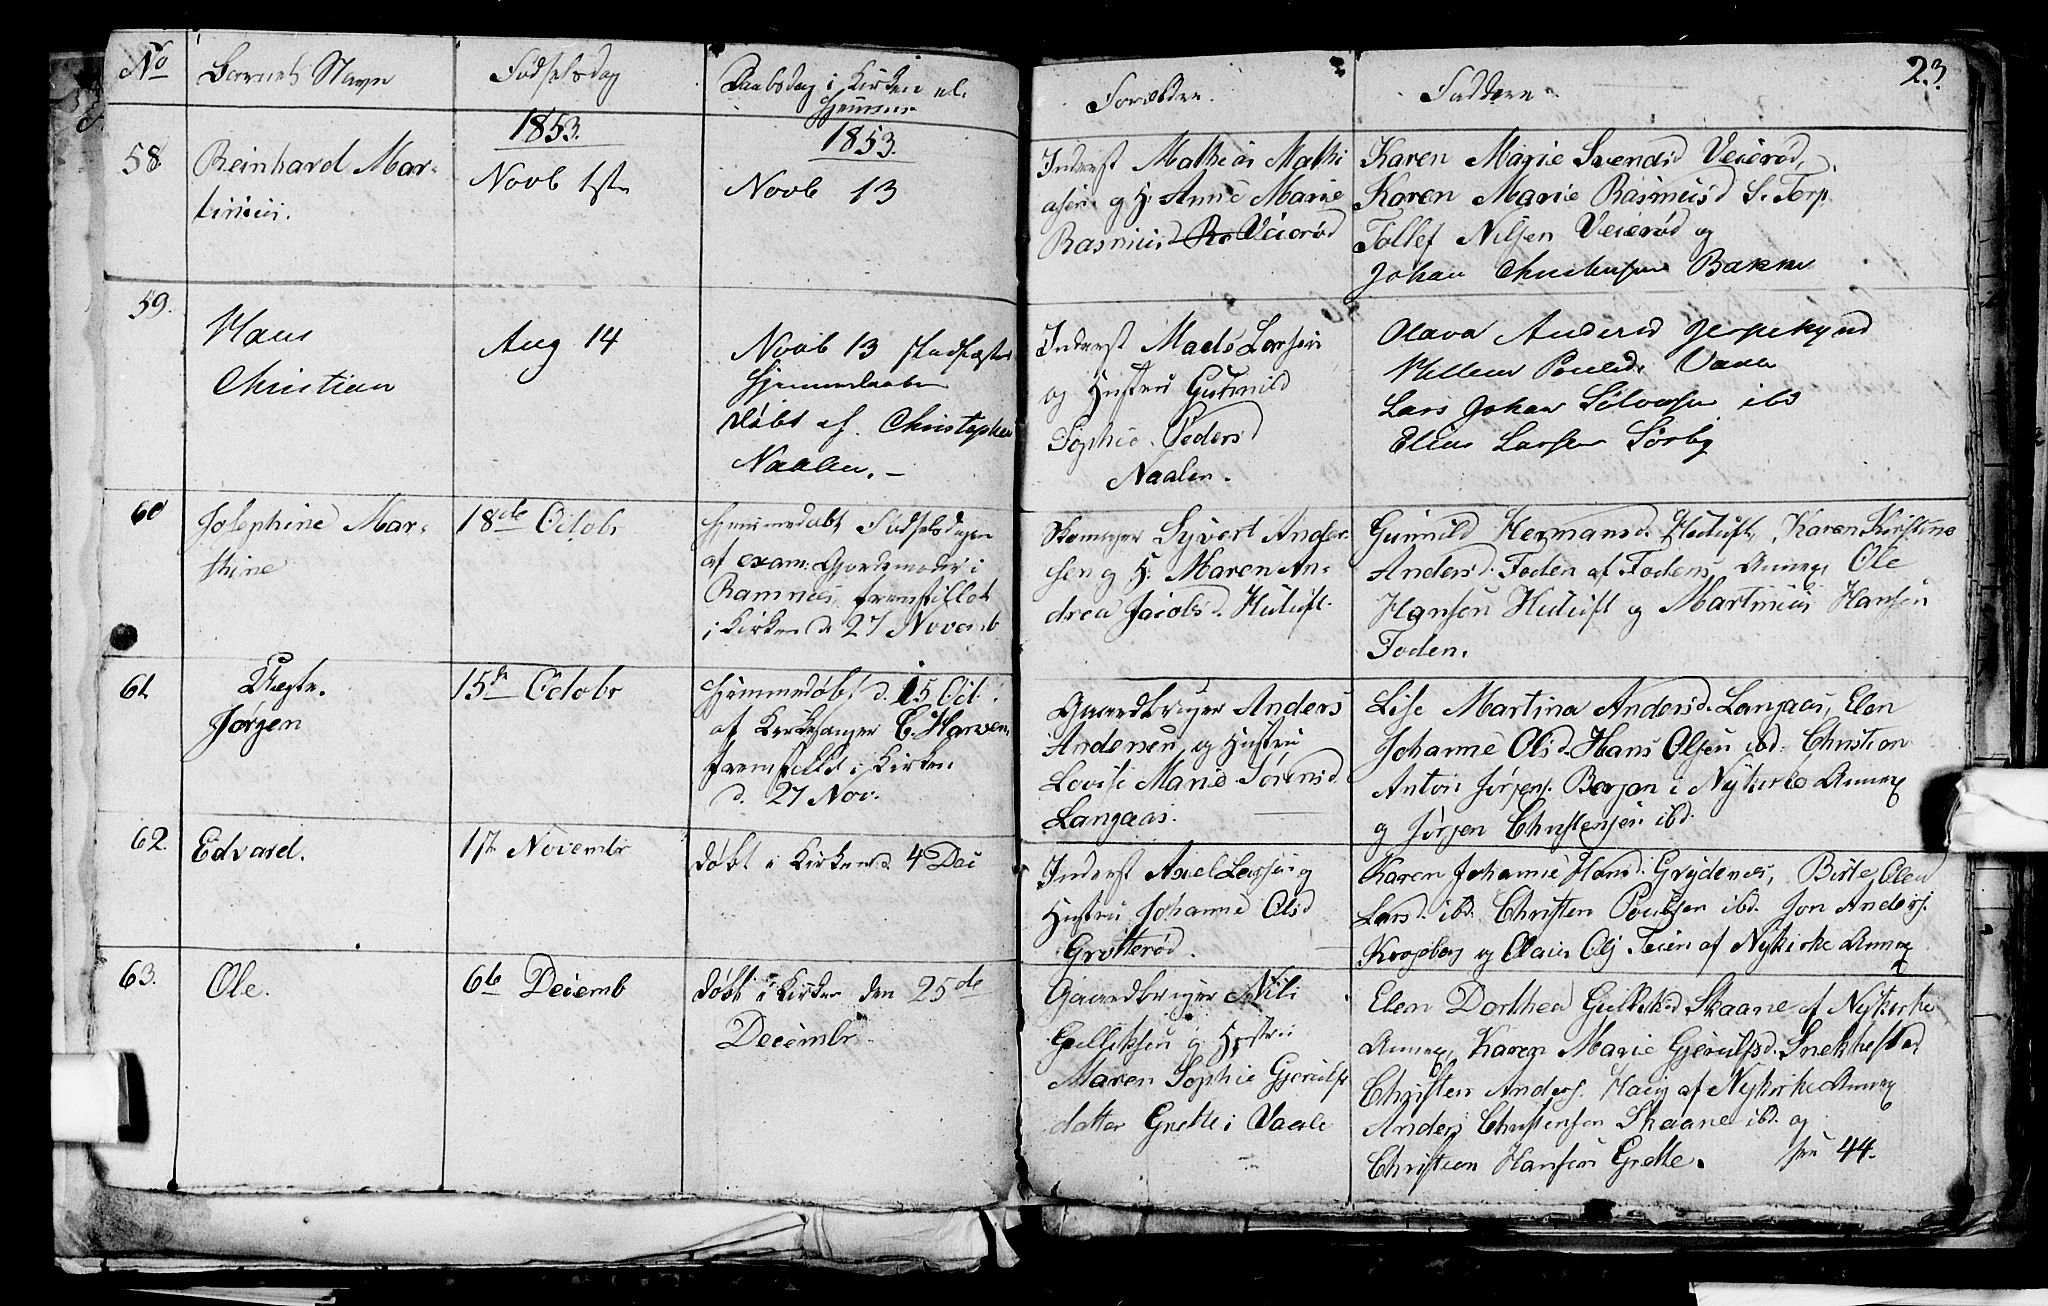 23.
No
Barnets Navn
Fødselsdag
Daabsdag i Kirken el.
Hjemme
Forældre.
Faddere
58
Reinhard Mar-
tinius.
1853.
Novb 1ste
1853.
Novb 13
Inderst Mathias Mathi
asen og H. Anne Marie
Rasmusd Ro Veierød
Karen Marie Svendsd Veierød,
Karen Marie Rasmusd S. Torp.
Tollef Nilsen Veierød og
Johan Christensen Bakke
59.
Hans
Christian
Aug 14
Novb 13 stadfæstet
Hjemmedaaben
Døbt af Christopher
Naalen. –
Inderst Mads Larsen
og Hustru Gunnild
Sophie Pedersd
Naalen.
Olava Andersd
Lars Johan ibd
Elias Larsen Sørby
60
Josephine Mar-
thine
18de Octobr
Hjemmedøbt Fødselsdagen
af exam: Gjordemoder i
Ramnes, fremstillet
i Kirken d 27 Novemb
Skomager Syvert Ander-
sen og H. Maren An-
drea Jacobsd. Hutuft.
Gunnild Hermansd. Hutuft, Karen Kirstine
Andersd. Foden af Fodens Annex Ole
Hansen Hutuft og Martinius Hansen
Foden.
61.
Ægte.
Jørgen
15de Octobr
Hjemmedøbt d. 15 Oct.
af Kirkesanger C. Horven
fremstillet i Kirken
d. 27 Nov.
Gaardbruger Anders
Andersen og Hustru
Lovise Marie Sørensd
Langaas.
Lise Martina Andersd. Langaas, Elen
Johanne Olsd. Hans Olsen ibd. Christian
Anton Jørgens. Borjan i Nykirke Annex
og Jørgen Christensen ibd.
62.
Edvard.
17de Novembr
Døbt i Kirken d. 4 Dec
Inderst Axel Larsen og
Hustru Johanne Olsd
Grotterød.
Karen Johanne Hansd. Grydenes, Birte Olea
Larsd. ibd. Christen Poulsen ibd. Jon Anders.
Krogsberg og Olaus Ols. Teien af Nykirke Annex
63.
Ole.
6te Decemb
Døbt i Kirken den 25de
Decembr
Gaardbruger Nils
Gulliksen og Hustru
Maren Sophie Gjerulfs
datter Grette i Vaale
Elen Dorthea Gulliksd Skaane af Nykirke
Annex, Karen Marie Gjerulfsd. Snekkestad
Christen Anders. Haug af Nykirke Annex
Anders Christensen Skaane ibd. og
Christian Hansen Grette.
44.